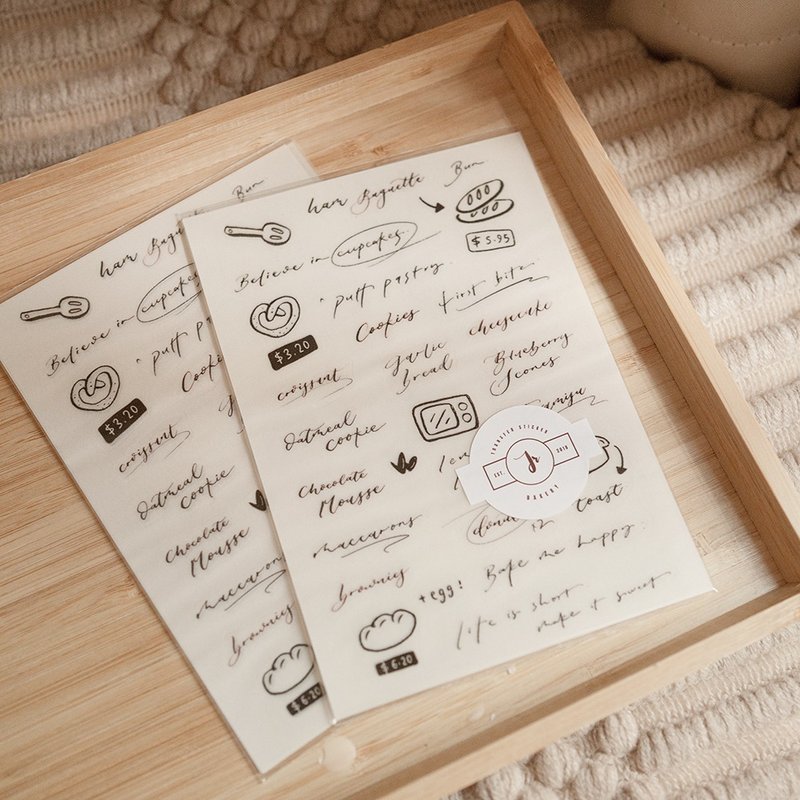 ham Baguette Bun
$5.95
Believe in cupcakes.
puff pastry
first bite
$3.20
Cookies
cheesecake
croissant
Garlic
Bread
Blueberry
Scones
Oatmeal
cookie
Chocolate
Mousse
TRANSFER STICKER
EST. Jr 2016
BAKERY
maccarons
toast
brownies
+egg!
Bake me happy.
$6.20
life is short
make it sweet
ham Bun
Believe in
puff
$3.20
croissant
Oatmeal
cookie
Chocolate
Mousse
maccarons
brownies
$6.20